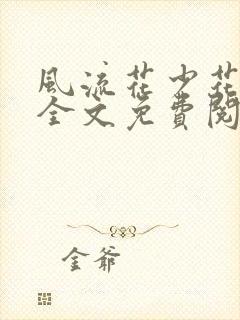 風流花少花
全文免費閱
金爺